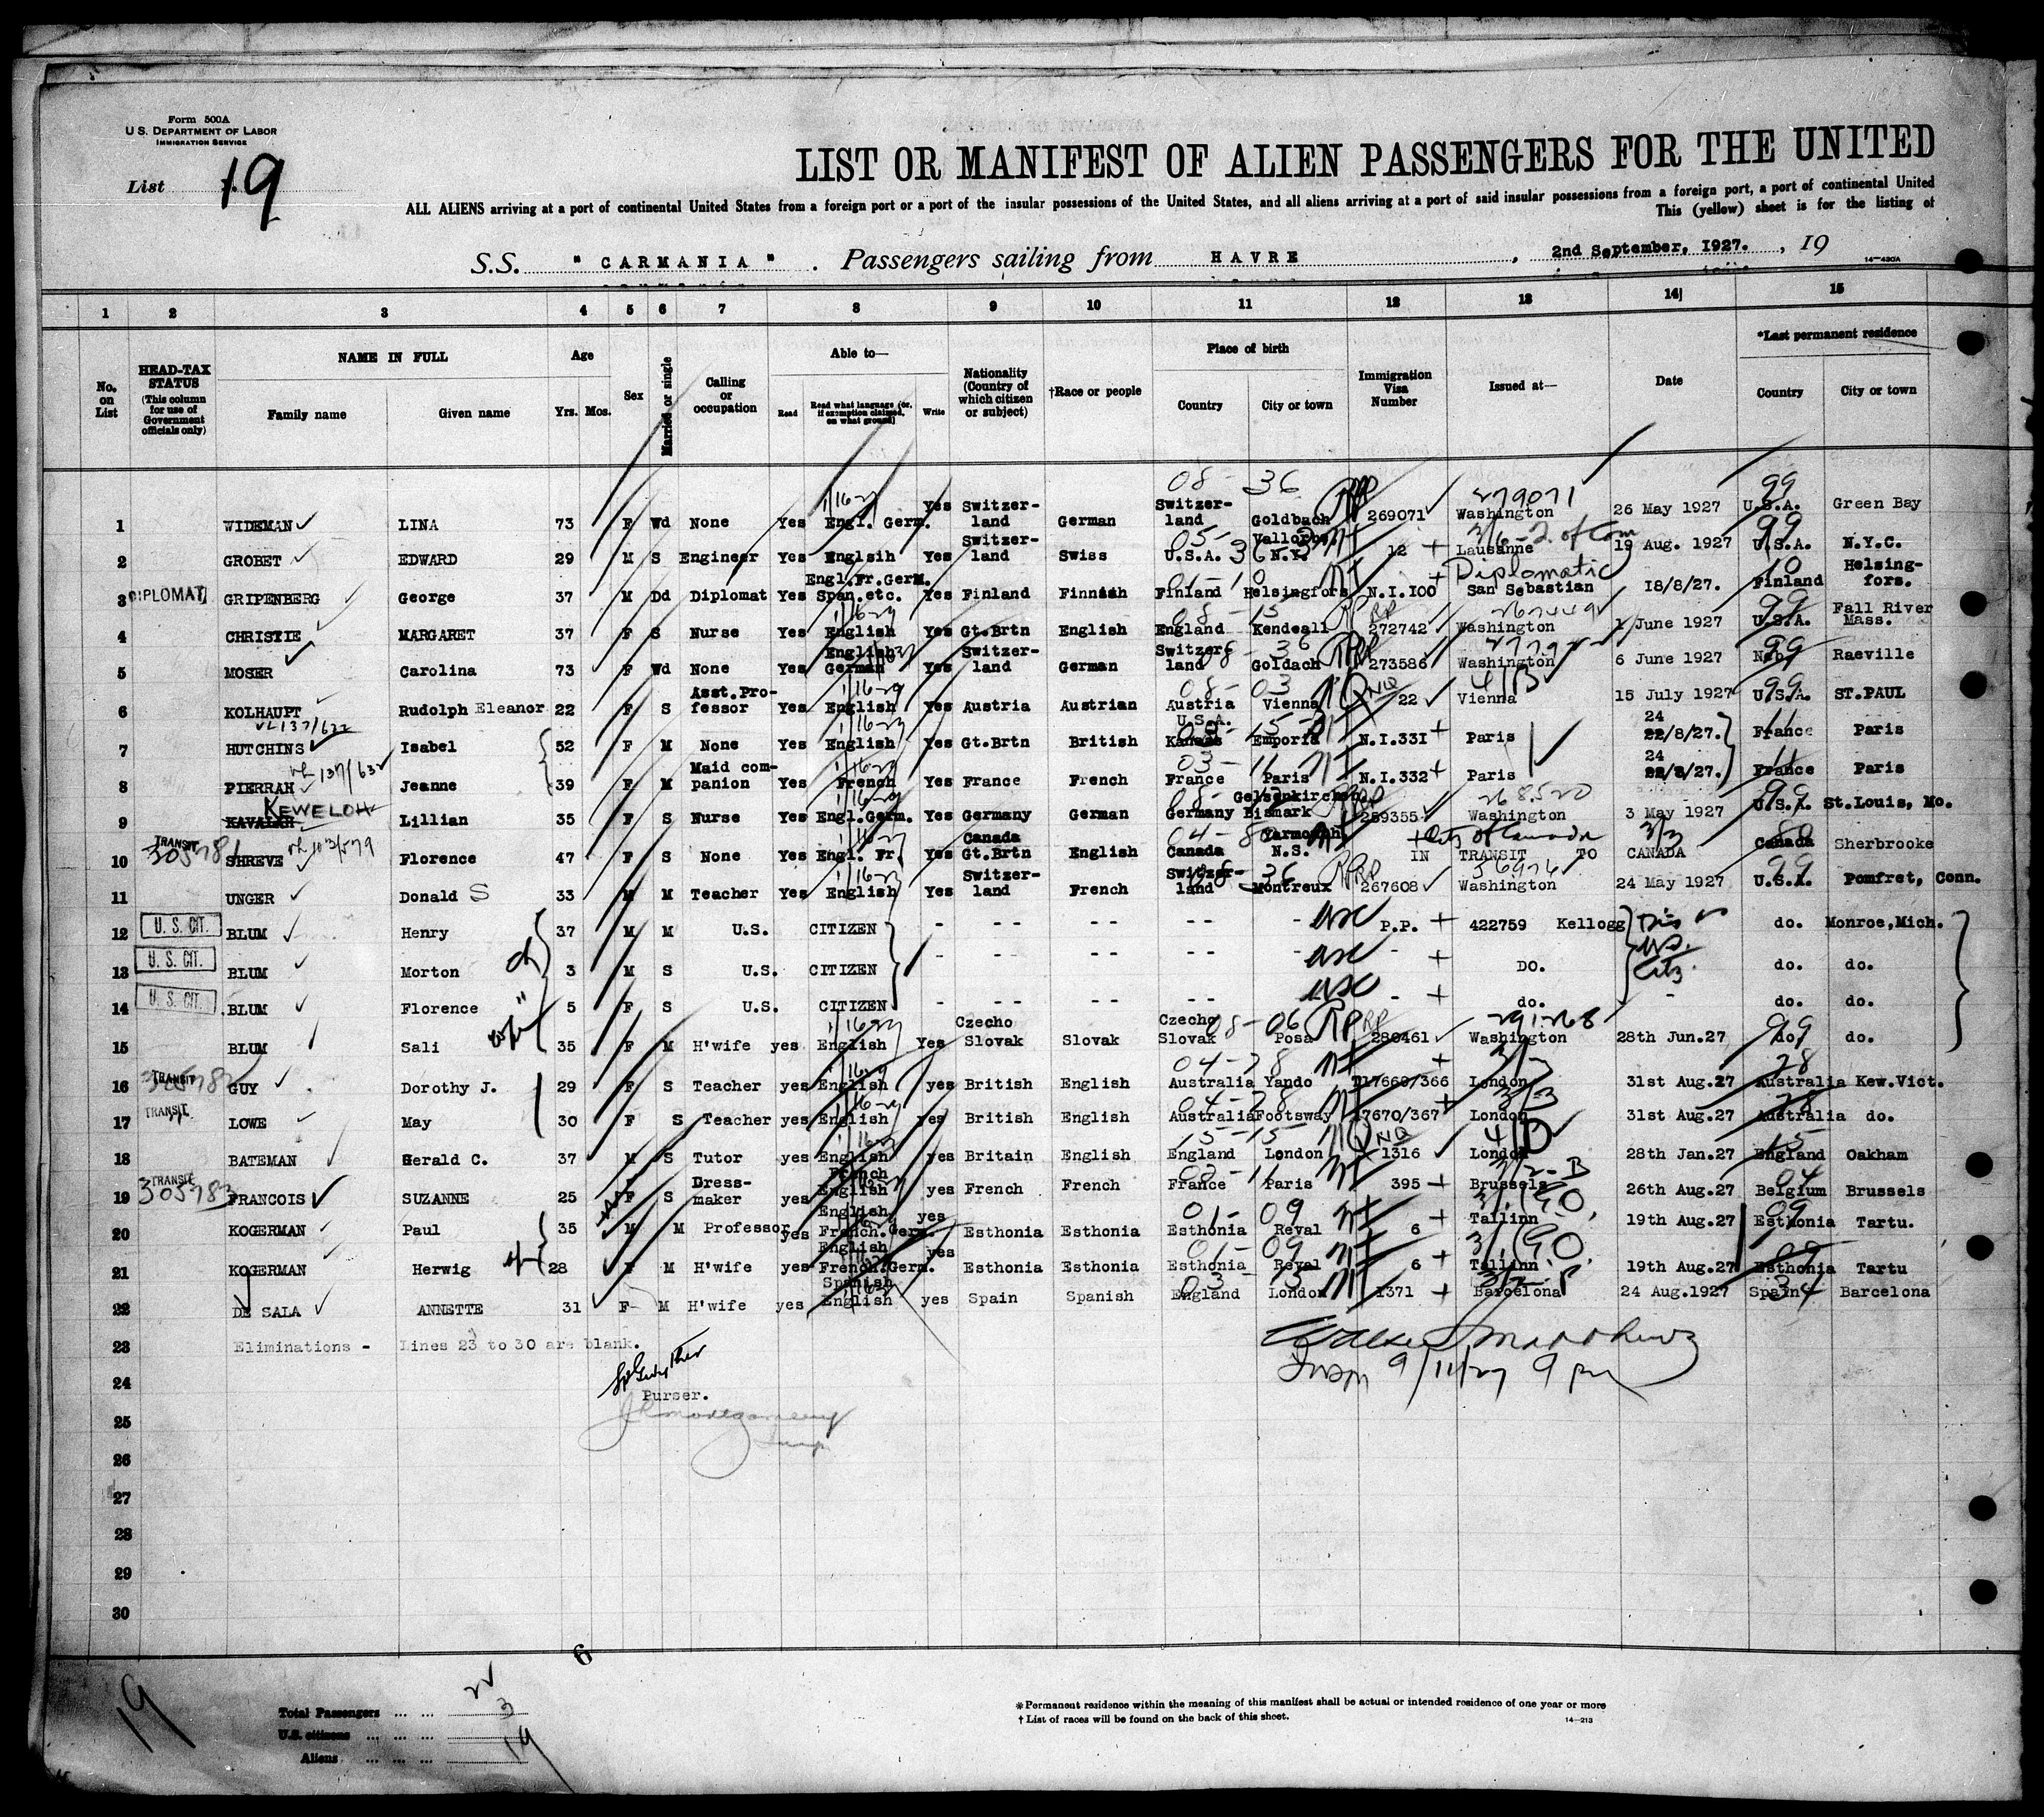 Form 500A
U. S. DEPARTMENT OF LABOR
IMMIGRATION SERVICE
List 19
LIST OR MANIFEST OF ALIEN PASSENGERS FOR THE UNITED
ALL ALIENS arriving at a port of continental United States from a foreign port or a port of the insular possessions of the United States, and all aliens arriving at a port of said insular possessions from a foreign port, a port of continental United
This (yellow) sheet is for the listing of
S.S. " CARMANIA " . Passengers sailing from HAVRE , 2nd September, 1927. , 19
14—430A
1 2 3 4 5 6 7 8 9 10 11 12 13 14 15
No. on List
HEAD-TAX STATUS (This column for use of Government officials only)
NAME IN FULL Family name Given name
Age Yrs. Mos.
Sex
Married or single
Calling or occupation
Able to— Read Read what language (or, if exemption claimed, on what ground) Write
Nationality (Country of which citizen or subject)
†Race or people
Place of birth Country City or town
Immigration Visa Number
Issued at—
Date
*Last permanent residence Country City or town
1 WIDEMAN LINA 73 F Wd None Yes Engl. Germ. Yes Switzer- land German Switzer- land Goldbach 269071 279071 Washington 26 May 1927 U.S.A. Green Bay
2 GROBET EDWARD 29 M S Engineer Yes Englsih Yes Switzer- land Swiss U.S.A. Vallorbe N.Y. 12 Lausanne 19 Aug. 1927 U.S.A. N.Y.C.
3 DIPLOMAT GRIPENBERG George 37 M Dd Diplomat Yes Engl.Fr.Germ. Span.etc. Yes Finland Finnish Finland Helsingfors N.I.100 Diplomatic San Sebastian 18/8/27. Finland Helsing- fors.
4 CHRISTIE MARGARET 37 F S Nurse Yes English Yes Gt.Brtn English England Kendeall 272742 Washington 1 June 1927 U.S.A. Fall River Mass.
5 MOSER Carolina 73 F Wd None Yes English German Yes Switzer- land German Switzer- land Goldach 273586 Washington 6 June 1927 Neb. Raeville
6 KOLHAUPT Rudolph Eleanor 22 F S Asst.Pro- fessor Yes English Yes Austria Austrian Austria Vienna 22 Vienna 15 July 1927 U.S.A. ST.PAUL
7 HUTCHINS Isabel 52 F M None Yes English Yes Gt.Brtn British U.S.A. Kanada Emporia N.I.331 Paris 24 22/8/27. France Paris
8 PIERRAH Jeanne 39 F M Maid com- panion Yes French Yes France French France Paris N.I.332 Paris 24 22/8/27. France Paris
9 KEWELOH KAVALAH Lillian 35 F S Nurse Yes Engl.Germ. Yes Germany German Germany Gelsenkirchen Bismark 259355 268520 Washington 3 May 1927 U.S.A. St.Louis, Mo.
10 TRANSIT 305781 SHREVE Florence 47 F S None Yes Engl. Fr. Yes Canada Gt.Brtn English Canada Yarmouth N.S. IN TRANSIT TO CANADA Canada Sherbrooke
11 UNGER Donald S 33 M M Teacher Yes English Yes Switzer- land French Switzer- land Montreux 267608 Washington 24 May 1927 U.S.A. Pomfret, Conn.
12 U. S. CIT. BLUM Henry 37 M M U.S. CITIZEN - - - - - USC P.P. 422759 Kellogg do. Monroe,Mich.
13 U. S. CIT. BLUM Morton 3 M S U.S. CITIZEN - - - - - USC - DO. do. do.
14 U. S. CIT. BLUM Florence 5 F S U.S. CITIZEN - - - - - USC - do. - do. do.
15 BLUM Sali 35 F M H'wife yes English Yes Czecho Slovak Slovak Czecho Slovak Posa 280461 291268 Washington 28th Jun.27 do. do.
16 TRANSIT GUY Dorothy J. 29 F S Teacher yes English yes British English Australia Yando 17669/366 London 31st Aug.27 Australia Kew.Vict.
17 TRANSIT LOWE May 30 F S Teacher yes English yes British English Australia Footsway 17670/367 London 31st Aug.27 Australia do.
18 BATEMAN Gerald C. 37 M S Tutor yes English yes Britain English England London 1316 London 28th Jan.27 England Oakham
19 TRANSIT 305783 FRANCOIS SUZANNE 25 F S Dress- maker yes French English yes French French France Paris 395 Brussels 26th Aug.27 Belgium Brussels
20 KOGERMAN Paul 35 M M Professor yes English French.Germ. yes Esthonia Esthonia Esthonia Reval 6 Tallinn 19th Aug.27 Esthonia Tartu.
21 KOGERMAN Herwig 28 F M H'wife yes English French.Germ. yes Esthonia Esthonia Esthonia Reval 6 Tallinn 19th Aug.27 Esthonia Tartu
22 DE SALA ANNETTE 31 F M H'wife yes Spanish English yes Spain Spanish England London 1371 Barcelona 24 Aug.1927 Spain Barcelona
23 Eliminations - Lines 23 to 30 are blank.
Walker Matthews
Insp 9/11/27 9 pm
24
Purser.
25
26
27
28
29
30
6
19
Total Passengers ... ... 22
U.S. citizens ... ... ... 3
Aliens ... ... ... 19
*Permanent residence within the meaning of this manifest shall be actual or intended residence of one year or more
† List of races will be found on the back of this sheet.
14—213